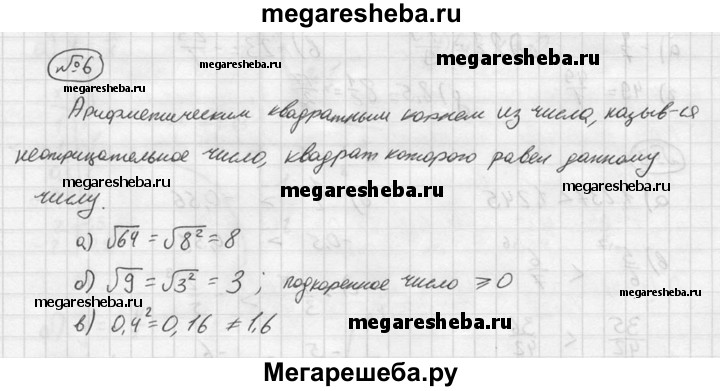 megaresheba.ru
№6
megaresheba.ru
megaresheba.ru
Арифметическим квадратным корнем из числа, назыв-ся
неотрицательное число, квадрат которого равен данному
megaresheba.ru
megaresheba.ru
megaresheba.ru
числу.
а) √64 = √8² = 8
б) √9 = √3² = 3 ; подкоренное число ⩾ 0
megaresheba.ru
в) 0,4² = 0,16 ≠ 1,6
megaresheba.ru
megaresheba.ru
Мегарешеба.ру